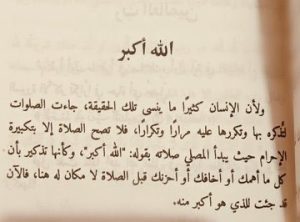 الله أكبر
ولأن الإنسان كثيرًا ما ينسى تلك الحقيقة، جاءت الصلوات
لتُذكره بها وتكررها عليه مرارًا وتكرارًا، فلا تصح الصلاة إلا بتكبيرة
الإحرام حيث يبدأ المصلي صلاته بقوله: "الله أكبر"، وكأنها تذكير بأن
كل ما أهمك أو أخافك أو أحزنك قبل الصلاة لا مكان له هنا، فالآن
قد جئت للذي هو أكبر منه.